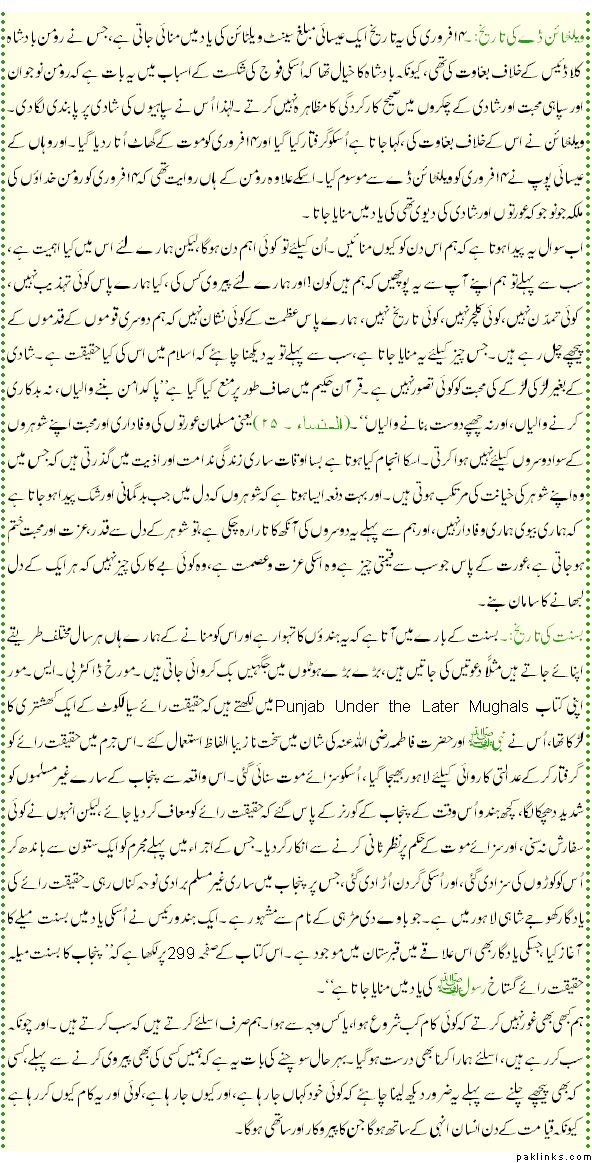 ویلنٹائن ڈے کی تاریخ:۔ ۱۴ فروری کی یہ تاریخ ایک عیسائی مبلغ سینٹ ویلنٹائن کی یاد میں منائی جاتی ہے، جس نے رومن بادشاہ
کلاڈئیس کے خلاف بغاوت کی تھی، کیونکہ بادشاہ کا خیال تھا کہ اُسکی فوج کی شکست کے اسباب میں یہ بات ہے کہ رومن نوجوان
اور سپاہی محبت اور شادی کے چکروں میں صحیح کارکردگی کا مظاہرہ نہیں کرتے ۔ لہٰذا اُس نے سپاہیوں کی شادی پر پابندی لگا دی۔
ویلنٹائن نے اس کے خلاف بغاوت کی، کہا جاتا ہے اُسکو گرفتار کیا گیا اور ۱۴ فروری کو موت کے گھاٹ اُتار دیا گیا ۔ اور وہاں کے
عیسائی پوپ نے ۱۴ فروری کو ویلنٹائن ڈے سے موسوم کیا۔ اسکے علاوہ رومن کے ہاں روایت تھی کہ ۱۴ فروری کو رومن خداؤں کی
ملکہ جونو جو کہ عورتوں اور شادی کی دیوی تھی کی یاد میں منایا جاتا ۔
اب سوال یہ پیدا ہوتا ہے کہ ہم اس دن کو کیوں منائیں ۔ اُن کیلئے تو کوئی اہم دن ہوگا، لیکن ہمارے لئے اس میں کیا اہمیت ہے ،
سب سے پہلے تو ہم اپنے آپ سے یہ پوچھیں کہ ہم ہیں کون! اور ہمارے لئے پیروی کس کی ، کیا ہمارے پاس کوئی تہذیب نہیں ،
کوئی تمدّن نہیں، کوئی کلچر نہیں، کوئی تاریخ نہیں، ہمارے پاس عظمت کے کوئی نشان نہیں کہ ہم دوسری قوموں کے قدموں کے
پیچھے چل رہے ہیں ۔ جس چیز کیلئے یہ منایا جاتا ہے، سب سے پہلے تو یہ دیکھنا چاہئے کہ اسلام میں اس کی کیا حقیقت ہے ۔ شادی
کے بغیر لڑکی لڑکے کی محبت کو کوئی تصور نہیں ہے ۔ قرآن حکیم میں صاف طور پر منع کیا گیا ہے ”پاکدامن بننے والیاں، نہ بدکاری
کرنے والیاں، اور نہ چھپے دوست بنانے والیاں“۔ (النساء ۔ ۲۵) یعنی مسلمان عورتوں کی وفاداری اور محبت اپنے شوہروں
کے سوا دوسروں کیلئے نہیں ہوا کرتی ۔ اسکا انجام کیا ہوتا ہے بسا اوقات ساری زندگی ندامت اور اذیت میں گذرتی ہیں کہ جس میں
وہ اپنے شوہر کی خیانت کی مرتکب ہوتی ہیں ۔ اور بہت دفعہ ایسا ہوتا ہے کہ شوہروں کہ دل میں جب بدگمانی اور شک پیدا ہو جاتا ہے
کہ ہماری بیوی ہماری وفادار نہیں، اور ہم سے پہلے یہ دوسروں کی آنکھ کا تارا رہ چکی ہے، تو شوہر کے دل سے قدر، عزت اور محبت ختم
ہو جاتی ہے ، عورت کے پاس جو سب سے قیمتی چیز ہے وہ اسکی عزت و عصمت ہے ، وہ کوئی بے کار کی چیز نہیں کہ ہر ایک کے دل
لبھانے کا سامان بنے ۔
بسنت کی تاریخ:۔ بسنت کے بارے میں آتا ہے کہ یہ ہندوؤں کا تہوار ہے اور اس کو منانے کے ہمارے ہاں ہر سال مختلف طریقے
اپنائے جاتے ہیں مثلاً دعوتیں کی جاتیں ہیں، بڑے بڑے ہوٹلوں میں جگہیں بک کروائی جاتی ہیں ۔ مورخ ڈاکٹر بی ۔ ایس ۔ مور
اپنی کتاب Punjab Under the Later Mughals میں لکھتے ہیں کہ حقیقت رائے سیالکوٹ کے ایک کھشتری کا
لڑکا تھا، اُس نے نبی ﷺ اور حضرت فاطمہ رضی اللہ عنہ کی شان میں سخت نازیبا الفاظ استعمال کئے ۔ اس جرم میں حقیقت رائے کو
گرفتار کر کے عدالتی کاروائی کیلئے لاہور بھیجا گیا ، اُسکو سزائے موت سنائی گئی ۔ اس واقعہ سے پنجاب کے سارے غیر مسلموں کو
شدید دھچکا لگا، کچھ ہندو اُس وقت کے پنجاب کے گورنر کے پاس گئے کہ حقیقت رائے کو معاف کر دیا جائے ، لیکن انہوں نے کوئی
سفارش نہ سنی ، اور سزائے موت کے حکم پر نظر ثانی کرنے سے انکار کر دیا ۔ جس کے اجراء میں پہلے مجرم کو ایک ستون سے باندھ کر
اُس کو کوڑوں کی سزا دی گئی ، اور اُسکی گردن اُڑا دی گئی، جس پر پنجاب میں ساری غیر مسلم برادی نوحہ کناں رہی ۔ حقیقت رائے کی
یادگار کھوجے شاہی لاہور میں ہے ۔ جو باوے دی مڑہی کے نام سے مشہور ہے ۔ ایک ہندو رئیس نے اُسکی یاد میں بسنت میلے کا
آغاز کیا ، جسکی یادگار بھی اس علاقے میں قبرستان میں موجود ہے ۔ اس کتاب کے صفحہ 299 پر لکھا ہے کہ ”پنجاب کا بسنت میلہ
حقیقت رائے گستاخِ رسول ﷺ کی یاد میں منایا جاتا ہے“۔
ہم کبھی بھی غور نہیں کرتے کہ کوئی کام کب شروع ہوا، یا کس وجہ سے ہوا ۔ ہم صرف اسلئے کرتے ہیں کہ سب کرتے ہیں ۔ اور چونکہ
سب کر رہے ہیں، اسلئے ہمارا کرنا بھی درست ہو گیا ۔ بہر حال سوچنے کی بات یہ ہے کہ ہمیں کسی کی بھی پیروی کرنے سے پہلے، کسی
کہ بھی پیچھے چلنے سے پہلے یہ ضرور دیکھ لینا چاہئے کہ کوئی خود کہاں جا رہا ہے ، اور کیوں جا رہا ہے ، کوئی اور یہ کام کیوں کر رہا ہے
کیونکہ قیامت کے دن انسان انہی کے ساتھ ہوگا جن کا پیروکار اور ساتھی ہوگا ۔
paklinks.com